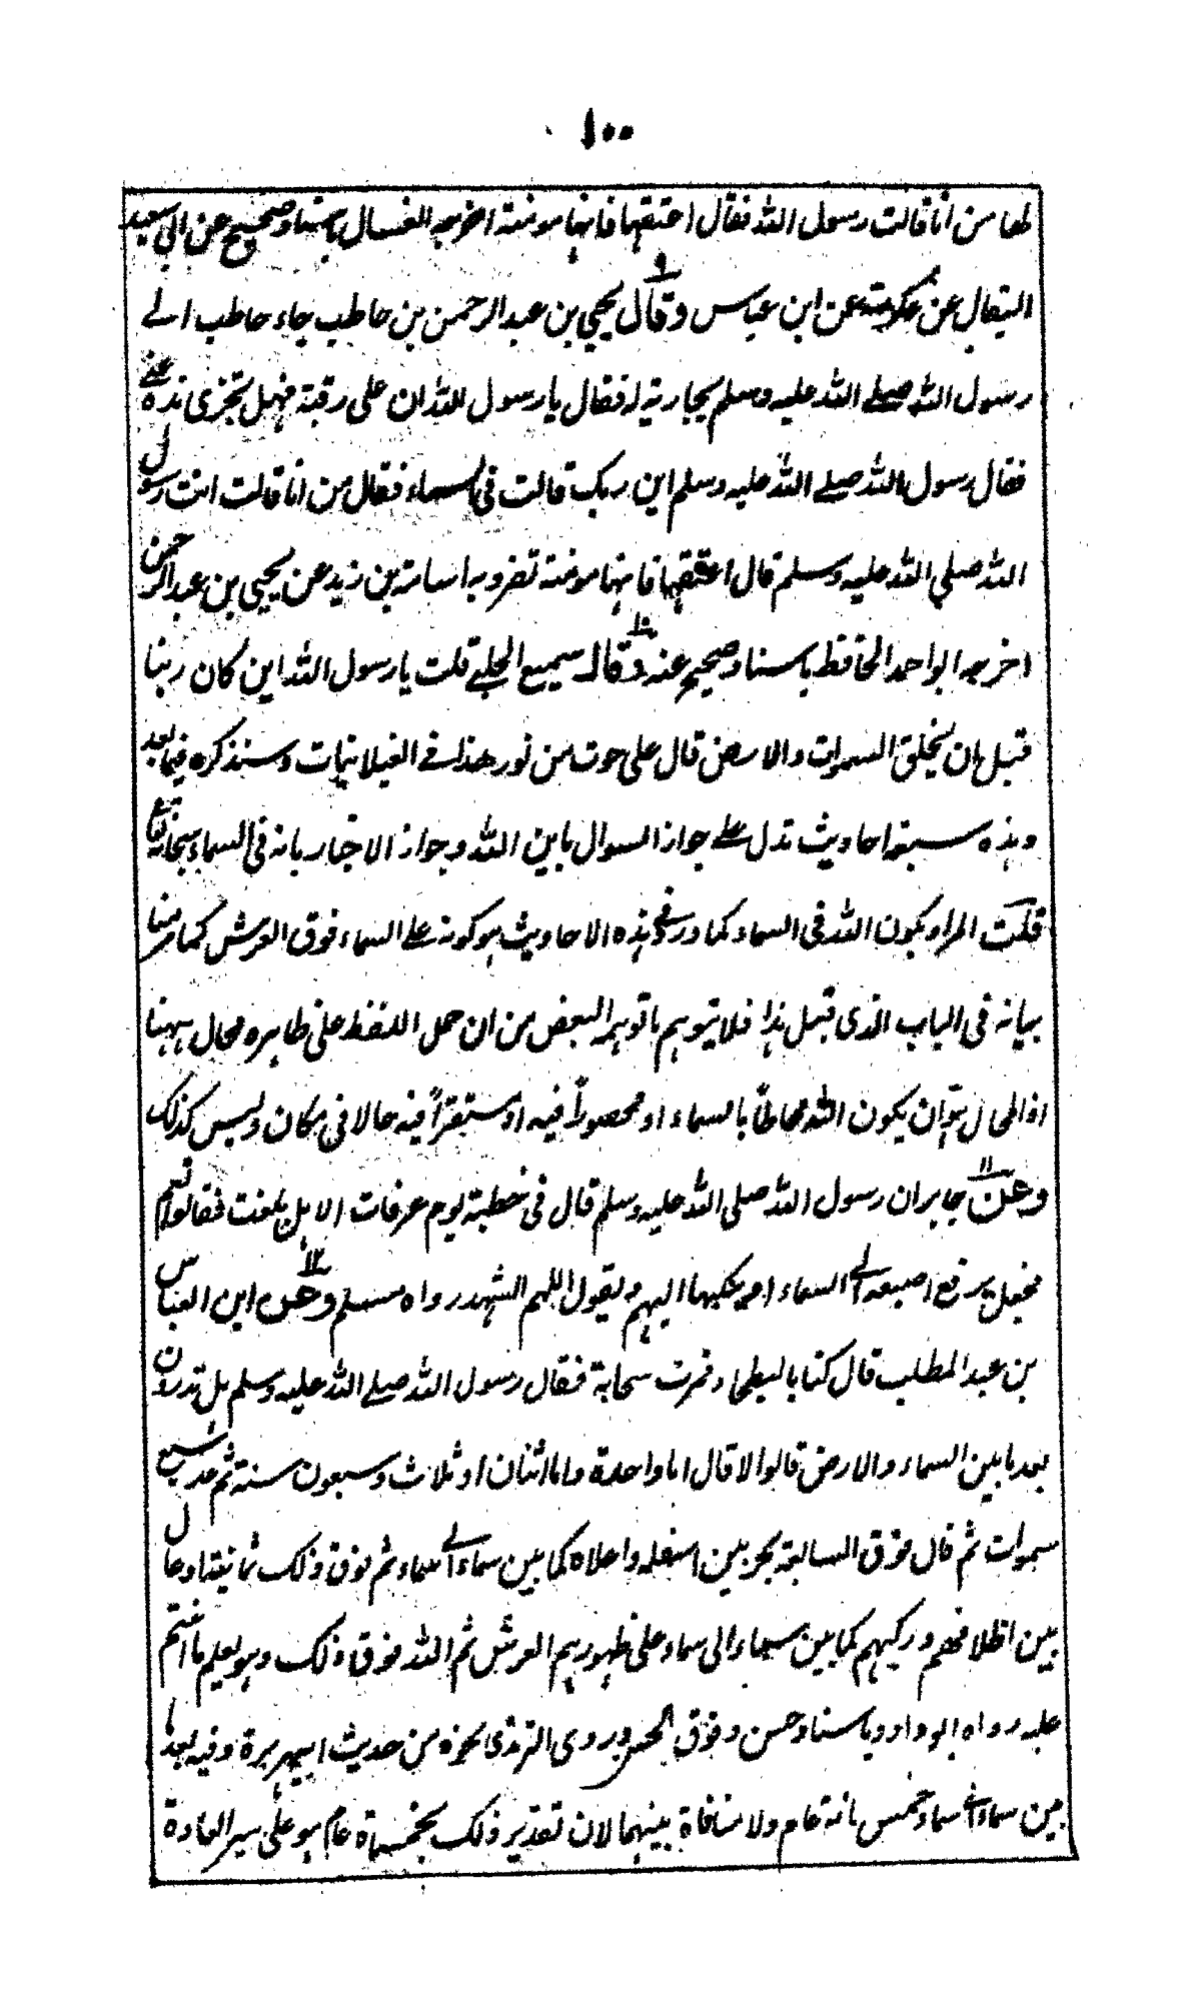 ١٠٠
لها من انا قالت رسول الله فقال اعتقها فانها مومنة اخرجه العسال باسناد صحيح عن ابی سعید
البقال عن عكرمة عن ابن عباس ٩ وقال يحيى بن عبد الرحمن بن حاطب جاء حاطب الے
رسول الله صلے الله عليه وسلم بجارية له فقال يا رسول الله ان على رقبة فهل تجزى هذه عنے
فقال رسول الله صلے الله عليه وسلم اين ربك قالت فى السماء فقال من انا قالت انت رسول
الله صلي الله عليه وسلم قال اعتقها فانها مومنة تفرد به اسامة بن زيد عن يحيى بن عبد الرحمن
اخرجه ابو احمد الحافظ باسناد صحيح عنه ١٠ وقال سميع الجلے قلت يا رسول الله اين كان ربنا
قبل ان يخلق السموات والارض قال على حوت من نور هذا فے الغيلانيات وسنذكره فيما بعد
وهذه سبعة احاديث تدل علے جواز السوال باين الله وجواز الاخبار بانه فى السماء سبحانه تعالے
قلت المراد بكون الله فى السماء كما ورد فے هذه الاحاديث هو كونه علے السماء فوق العرش كما مر منا
بيانه فى الباب الذى قبل هذا فلا يتوهم ما توهم البعض من ان حمل اللفظ على ظاهره محال ههنا
اذ المحال هو ان يكون الله محاطاً بالسماء او محصوراً فيه او مستقراً فيه حالا فى مكان وليس كذلك
١١ وعن جابر ان رسول الله صلى الله عليه وسلم قال فى خطبة يوم عرفات الا هل بلغت فقالوا نعم
فجعل يرفع اصبعه الے السماء وينكبها اليهم ويقول اللهم اشهد رواه مسلم ١٢ وعن ابن العباس
بن عبد المطلب قال كنا بالبطحاء فمرت سحابة فقال رسول الله صلے الله عليه وسلم هل تدرون
بعد ما بين السماء والارض قالوا لا قال اما واحدة واما اثنان او ثلاث وسبعون سنة ثم عد سبع
سموات ثم قال فوق السابعة بحر بين اسفله واعلاه كما بين سماء الے سماء ثم فوق ذلك ثمانية اوعال
بين اظلافهم وركبهم كما بين سماء الى سماء على ظهورهم العرش ثم الله فوق ذلك وهو يعلم ما انتم
عليه رواه ابو داود باسناد حسن وفوق الحسن وروى الترمذى نحوه من حديث ابيهريرة وفيه بعد ما
بين سماء الے سماء خمس مائة عام ولا منافاة بينهما لان تقدير ذلك بخمسمائة عام هو على سير العادة